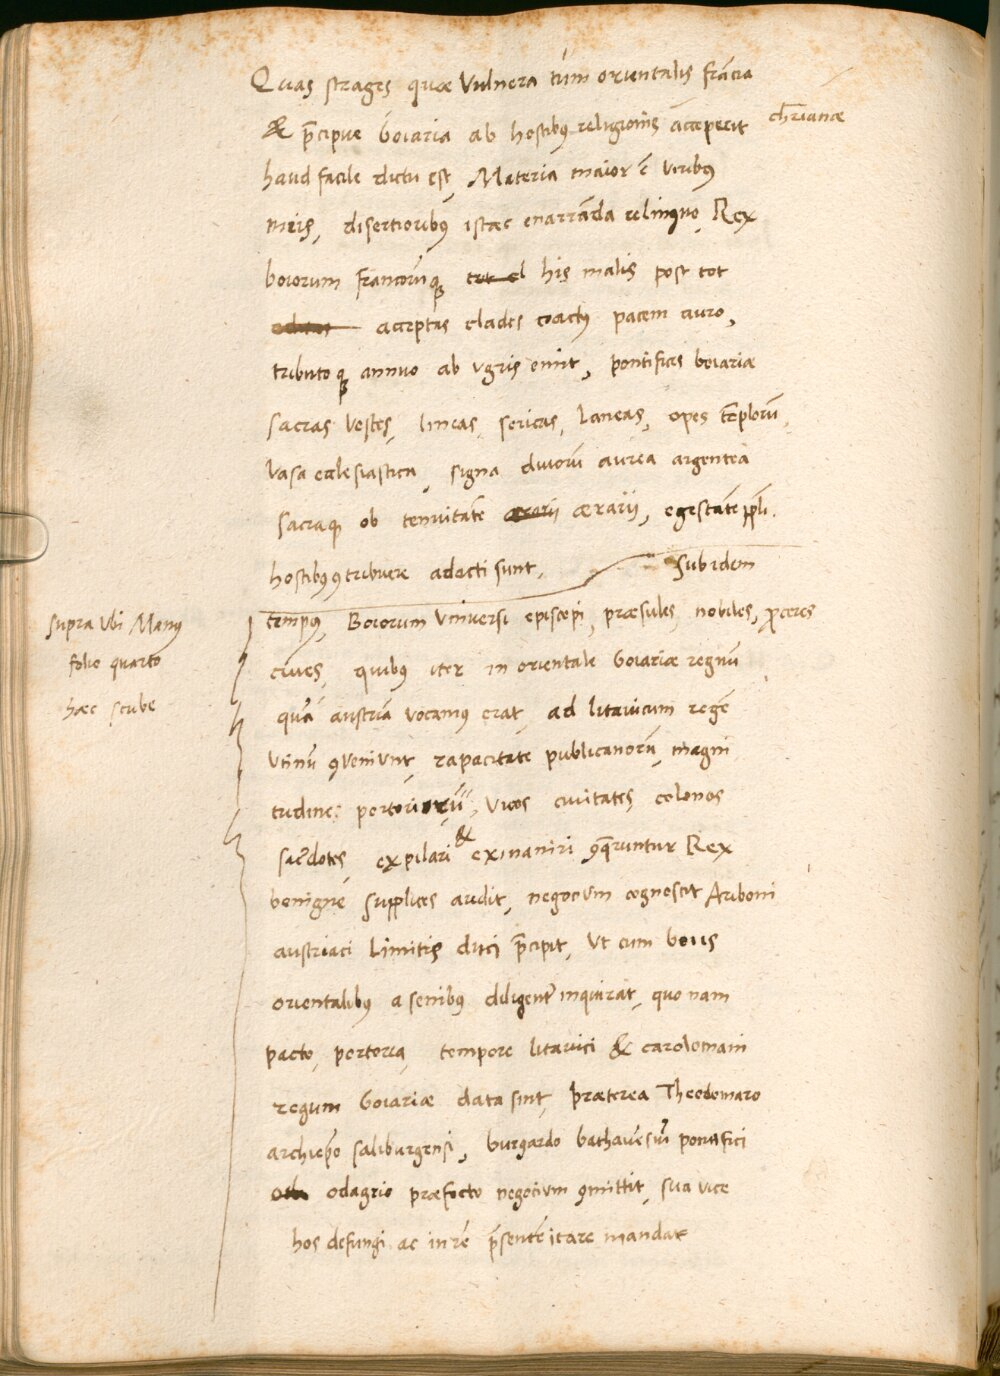 Quas strages quæ Vulnera tum orientalis frãcia
& p̃cipue boiaria ab hostibus religionis accœperit chr̃ianæ
haud facile dictu est, Materia maior ẽ viribus
meis, disertioribus istæc enarrãda relinquo, Rex
boiorum francorũque his malis post tot
acceptas clades coactus pacem auro,
tributoque annuo ab Vgris emit, pontifices boiariæ
sacras Vestes, lineas, sericas, laneas, opes tẽplorũ,
Vasa ecclesiastica, signa diuorũ aurea argentea
sacraque ob tenuitatẽ ærarii ærarii, egestatẽ ppli.
hostibus 9tribuere adacti sunt. Sub idem
tempus, Boiorum Vniuersi episcopi, præsules, nobiles, proceres
ciues, quibus iter in orientale boiariæ regnũ
quã austriã vocamus erat, ad litauicum regẽ
Vtinũ 9VeniVnt, rapacitate publicanorũ, magni
tudine portoriorũ, Vicos ciuitates colonos
sacerdotes, expilari & exinaniri 9queruntur Rex
benignè supplices audit, negocium cognoscit Ariboni
austriaci Limitis duci p̃cipit, Vt cum bois
orientalibus a senibus diligenter inquirat, quo nam
pacto, portoria, tempore litauici & carolomani
regum boiariæ data sint, præterea Theodomaro
archiep̃o saliburgensi, burgardo bathauẽsiũ pontifici
odagrio præfecto negotium 9mittit, sua vice
hos defungi ac in rẽ p̃sentẽ icare mandat
Supra Vbi Manus
folio quarto
hæc scribe